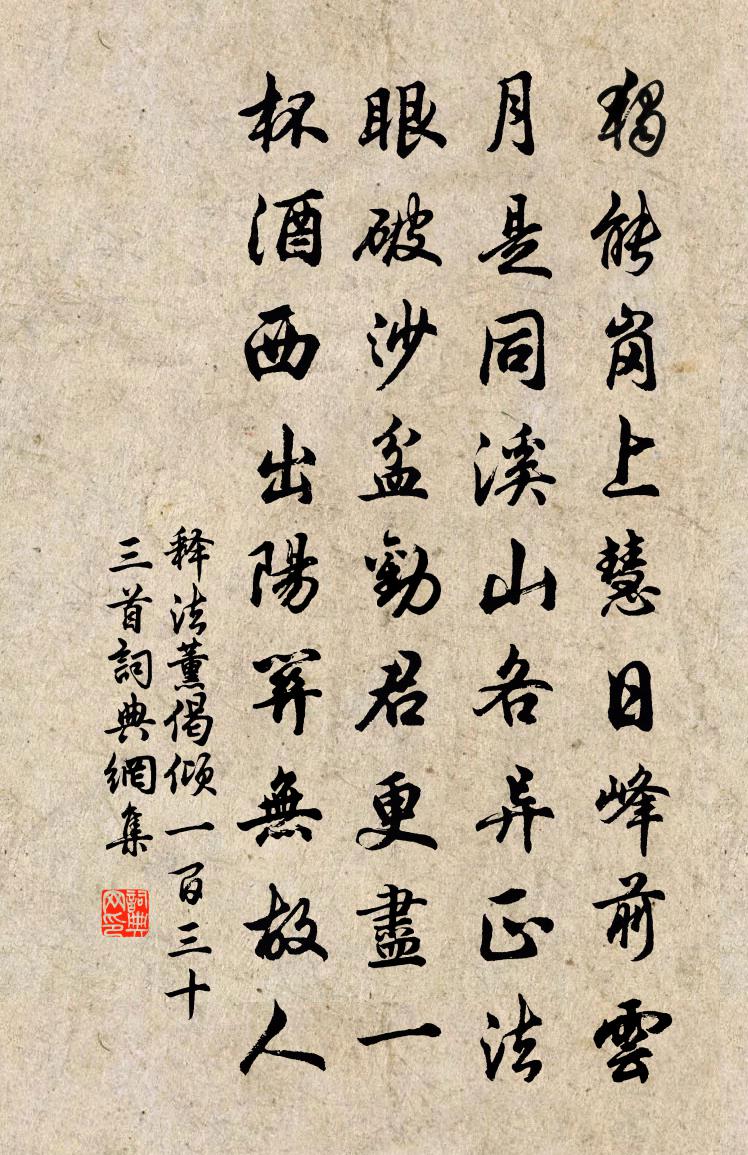 獨龍崗上慧日峰前雲
月是同溪山各异正法
眼破沙盆勸君更盡一
杯酒西出陽關無故人
释法薰偈傾一百三十
三首詞典網集
詞典网印